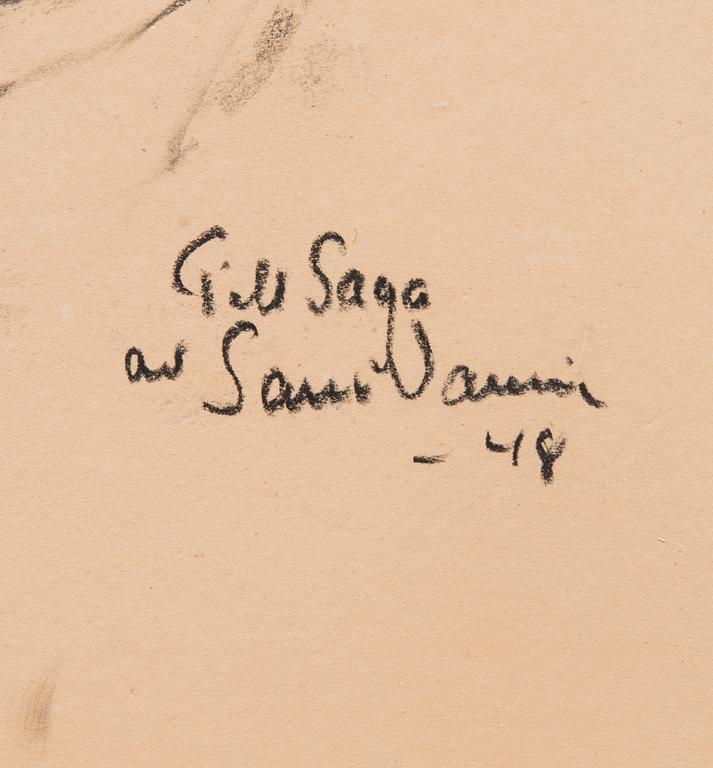 Till Saga
av Sami Vanni
-48